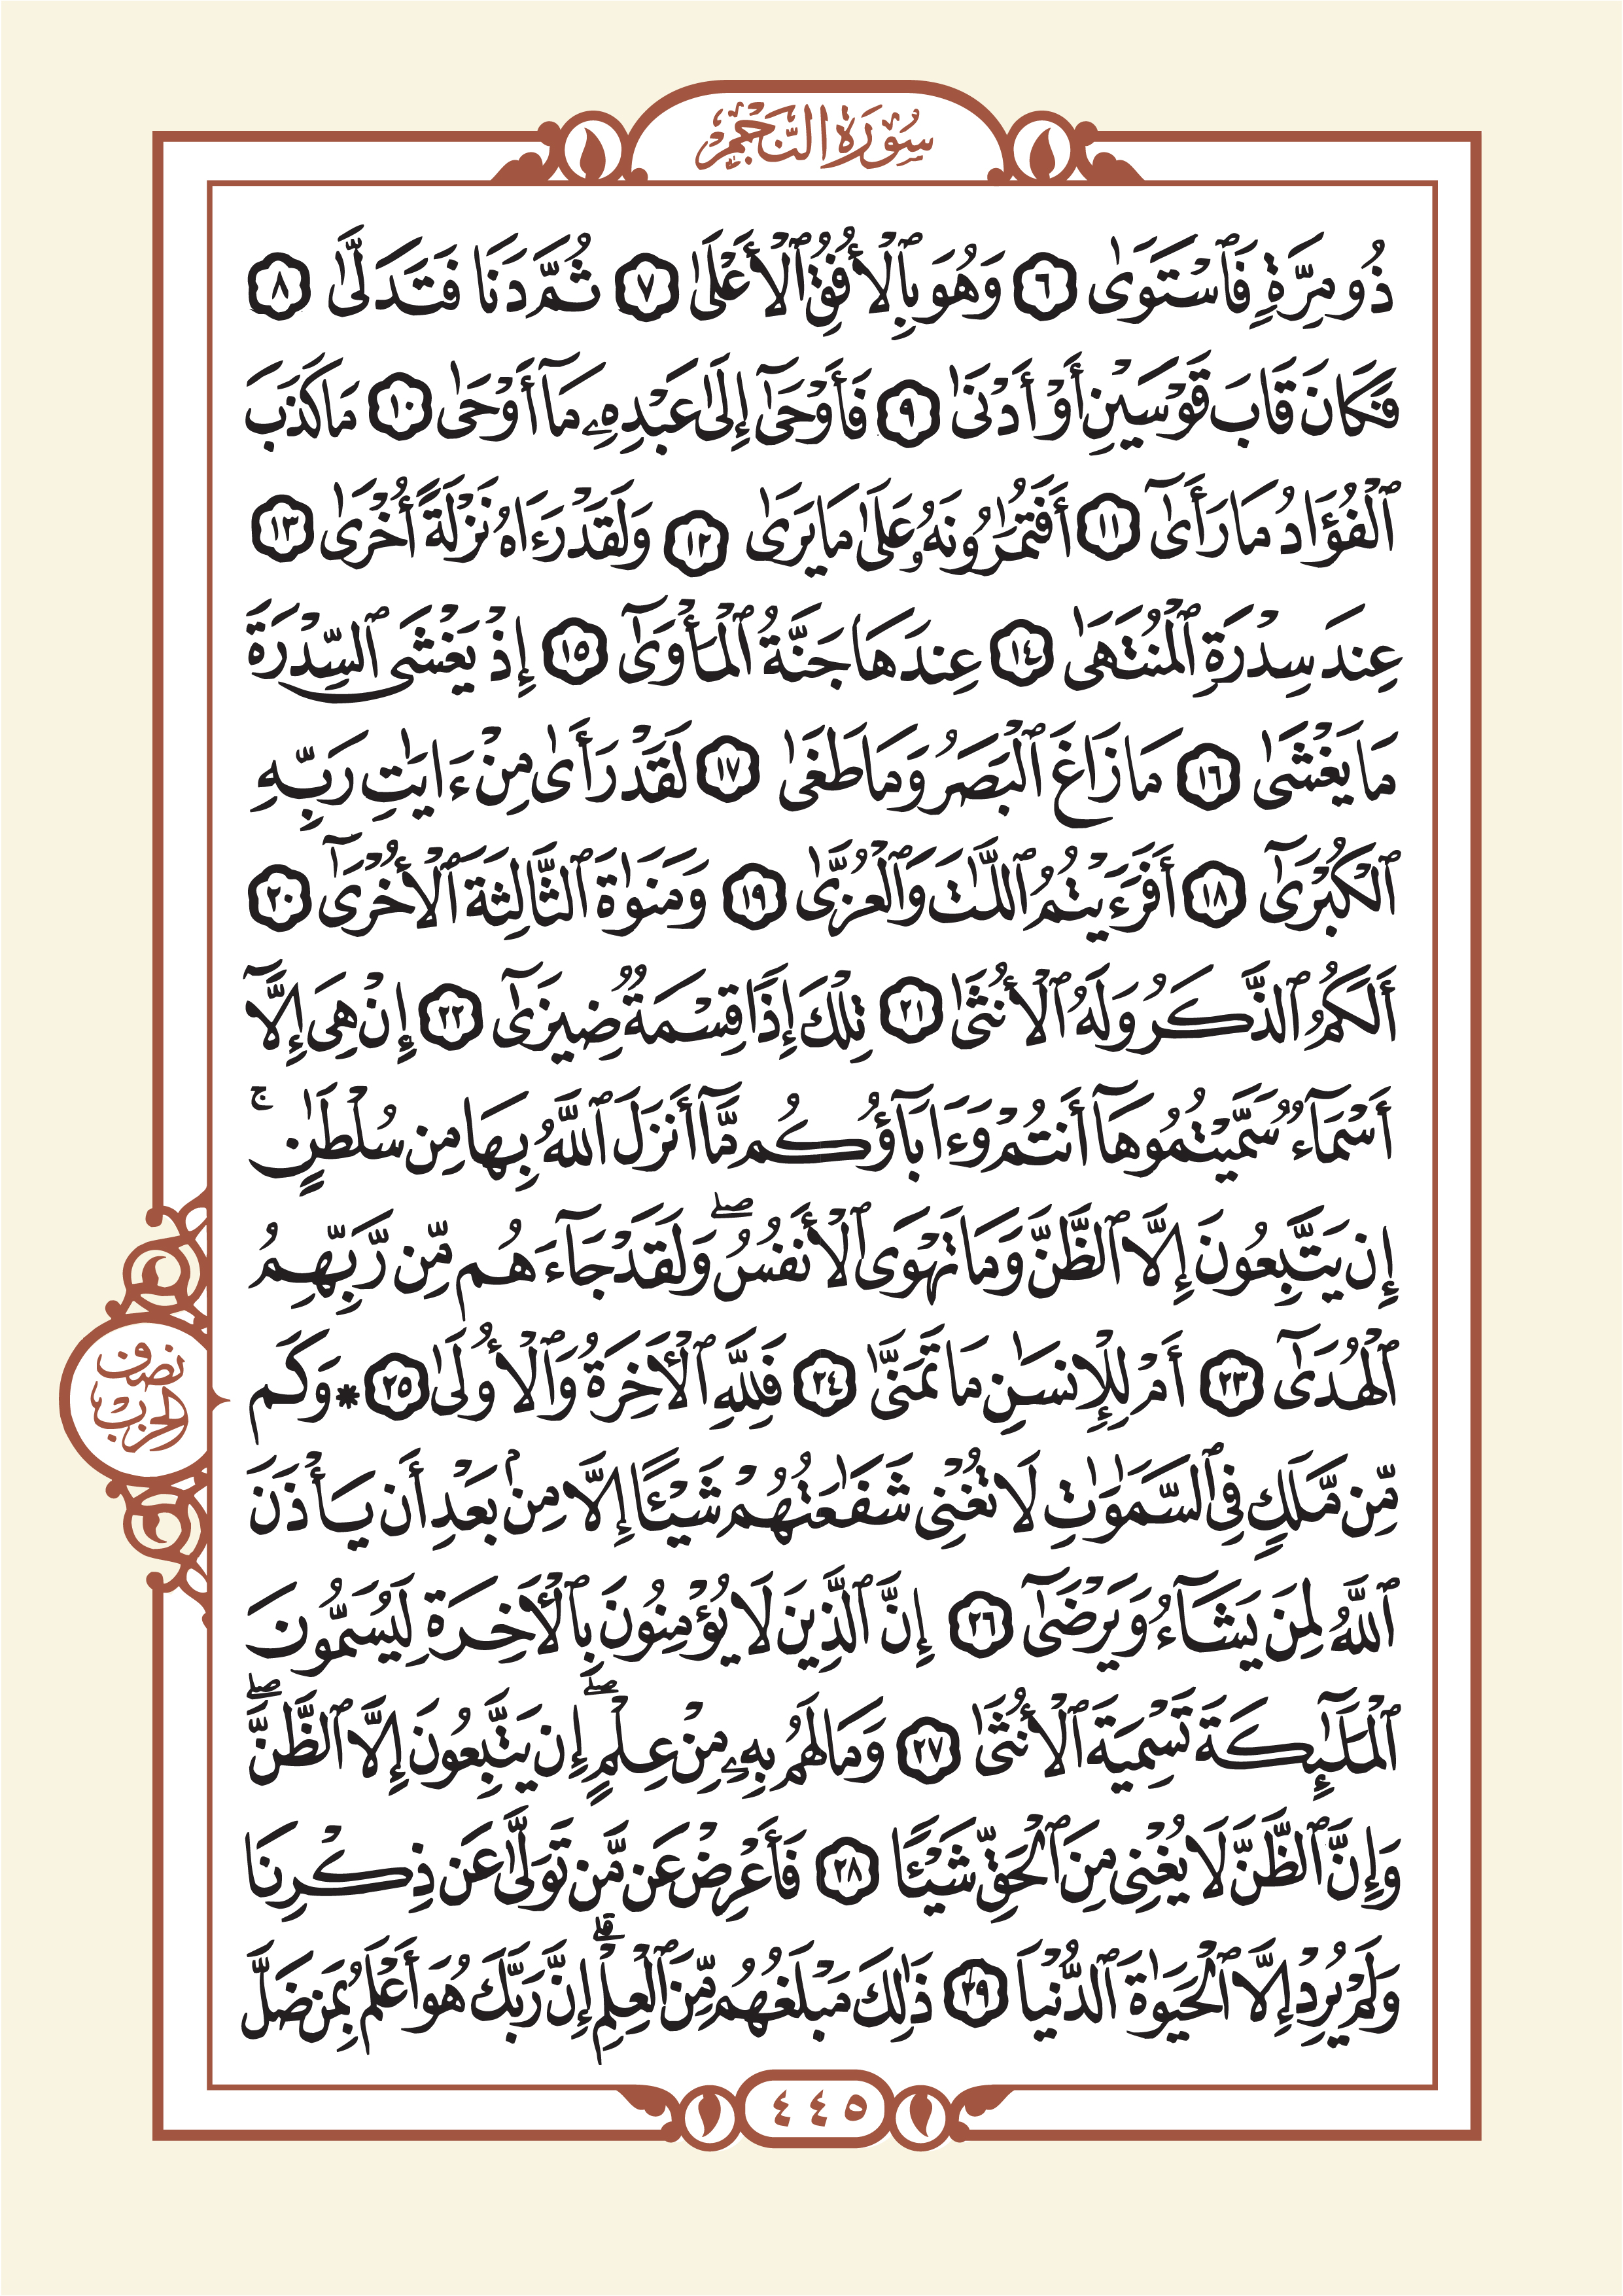 سُورَةُ النَّجْمِ
ذُو مِرَّةٍ فَٱسْتَوَىٰ ٦ وَهُوَ بِٱلْأُفُقِ ٱلْأَعْلَىٰ ٧ ثُمَّ دَنَا فَتَدَلَّىٰ ٨
فَكَانَ قَابَ قَوْسَيْنِ أَوْ أَدْنَىٰ ٩ فَأَوْحَىٰٓ إِلَىٰ عَبْدِهِۦ مَآ أَوْحَىٰ ١٠ مَا كَذَبَ
ٱلْفُؤَادُ مَا رَأَىٰٓ ١١ أَفَتُمَٰرُونَهُۥ عَلَىٰ مَا يَرَىٰ ١٢ وَلَقَدْ رَءَاهُ نَزْلَةً أُخْرَىٰ ١٣
عِندَ سِدْرَةِ ٱلْمُنتَهَىٰ ١٤ عِندَهَا جَنَّةُ ٱلْمَأْوَىٰٓ ١٥ إِذْ يَغْشَى ٱلسِّدْرَةَ
مَا يَغْشَىٰ ١٦ مَا زَاغَ ٱلْبَصَرُ وَمَا طَغَىٰ ١٧ لَقَدْ رَأَىٰ مِنْ ءَايَٰتِ رَبِّهِ
ٱلْكُبْرَىٰٓ ١٨ أَفَرَءَيْتُمُ ٱللَّٰتَ وَٱلْعُزَّىٰ ١٩ وَمَنَوٰةَ ٱلثَّالِثَةَ ٱلْأُخْرَىٰٓ ٢٠
أَلَكُمُ ٱلذَّكَرُ وَلَهُ ٱلْأُنثَىٰ ٢١ تِلْكَ إِذًا قِسْمَةٌ ضِيزَىٰٓ ٢٢ إِنْ هِىَ إِلَّآ
أَسْمَآءٌ سَمَّيْتُمُوهَآ أَنتُمْ وَءَابَآؤُكُم مَّآ أَنزَلَ ٱللَّهُ بِهَا مِن سُلْطَٰنٍ ۚ
إِن يَتَّبِعُونَ إِلَّا ٱلظَّنَّ وَمَا تَهْوَى ٱلْأَنفُسُ ۖ وَلَقَدْ جَآءَهُم مِّن رَّبِّهِمُ
ٱلْهُدَىٰٓ ٢٣ أَمْ لِلْإِنسَٰنِ مَا تَمَنَّىٰ ٢٤ فَلِلَّهِ ٱلْأَخِرَةُ وَٱلْأُولَىٰ ٢٥ * وَكَم
نصف الحزب
مِّن مَّلَكٍ فِى ٱلسَّمَٰوَٰتِ لَا تُغْنِى شَفَٰعَتُهُمْ شَيْـًٔا إِلَّا مِنۢ بَعْدِ أَن يَأْذَنَ
ٱللَّهُ لِمَن يَشَآءُ وَيَرْضَىٰٓ ٢٦ إِنَّ ٱلَّذِينَ لَا يُؤْمِنُونَ بِٱلْأَخِرَةِ لَيُسَمُّونَ
ٱلْمَلَٰٓئِكَةَ تَسْمِيَةَ ٱلْأُنثَىٰ ٢٧ وَمَا لَهُم بِهِۦ مِنْ عِلْمٍ ۖ إِن يَتَّبِعُونَ إِلَّا ٱلظَّنَّ ۖ
وَإِنَّ ٱلظَّنَّ لَا يُغْنِى مِنَ ٱلْحَقِّ شَيْـًٔا ٢٨ فَأَعْرِضْ عَن مَّن تَوَلَّىٰ عَن ذِكْرِنَا
وَلَمْ يُرِدْ إِلَّا ٱلْحَيَوٰةَ ٱلدُّنْيَا ٢٩ ذَٰلِكَ مَبْلَغُهُم مِّنَ ٱلْعِلْمِ ۚ إِنَّ رَبَّكَ هُوَ أَعْلَمُ بِمَن ضَلَّ
٤٤٥